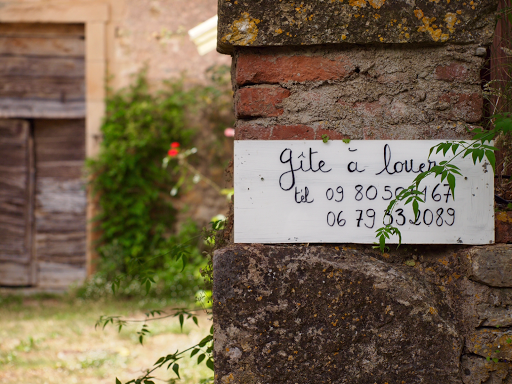 gîte à louer
tél 09 80 50 67
06 79 83 2089